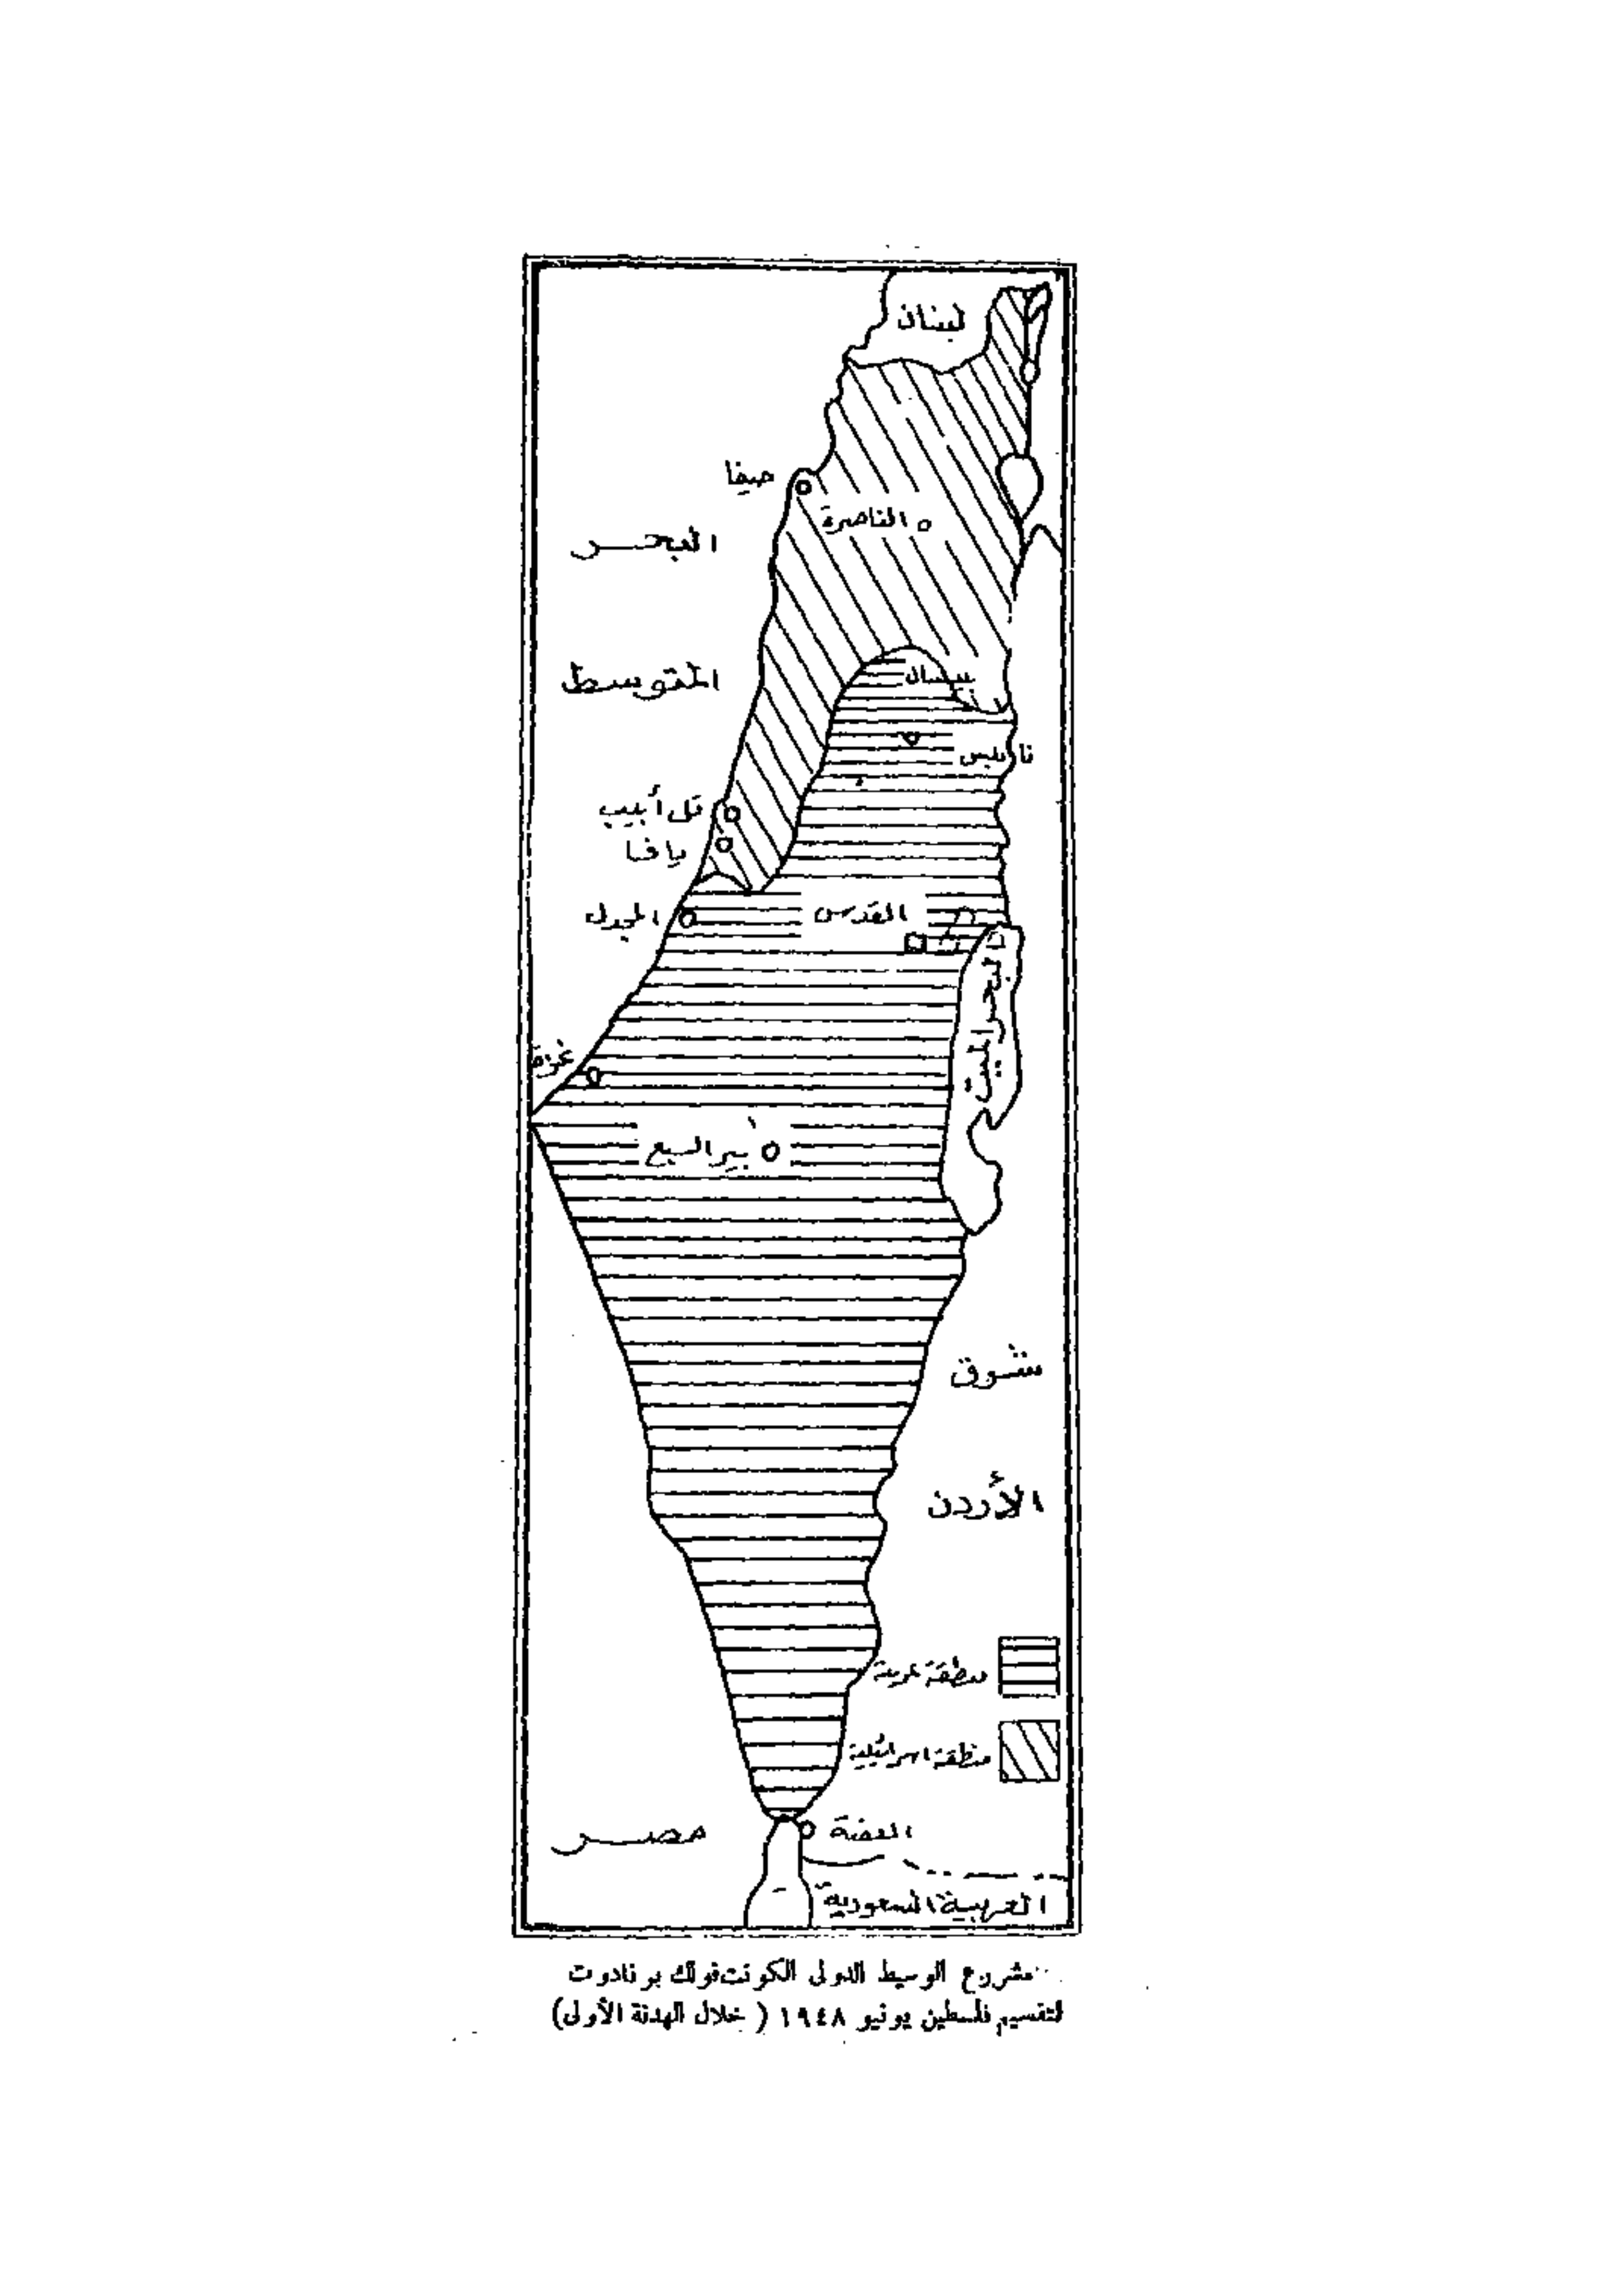 لبنان
حيفا
الناصرة
البحر
المتوسط
بيسان
نابلس
تل أبيب
يافا
المجدل
القدس
البحر الميت
غزة
بير السبع
شرق
الأردن
منطقة عربية
منطقة اسرائيلية
العقبة
مصر
العربية السعودية
مشروع الوسيط الدولى الكونت فولك برنادوت
لتقسيم فلسطين يونيو ١٩٤٨ ( خلال الهدنة الأولى)